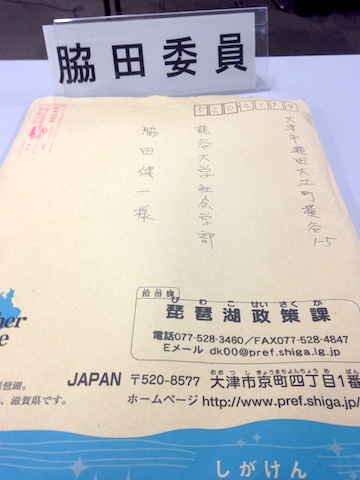 脇田委員
5202194
大津市瀬田大江町横谷
1-5
龍谷大学社会学部
脇田健一様
担当課
びわこせいさくか
琵琶湖政策課
電話077-528-3460/FAX077-528-4847
Eメール dk00@pref.shiga.lg.jp
琵琶湖。
、滋賀県です。
おおつしきょうまちよんちょうめばん
JAPAN 〒520-8577 大津市京町四丁目1番
ホームページ http://www.pref.shiga.jp/
しがけん